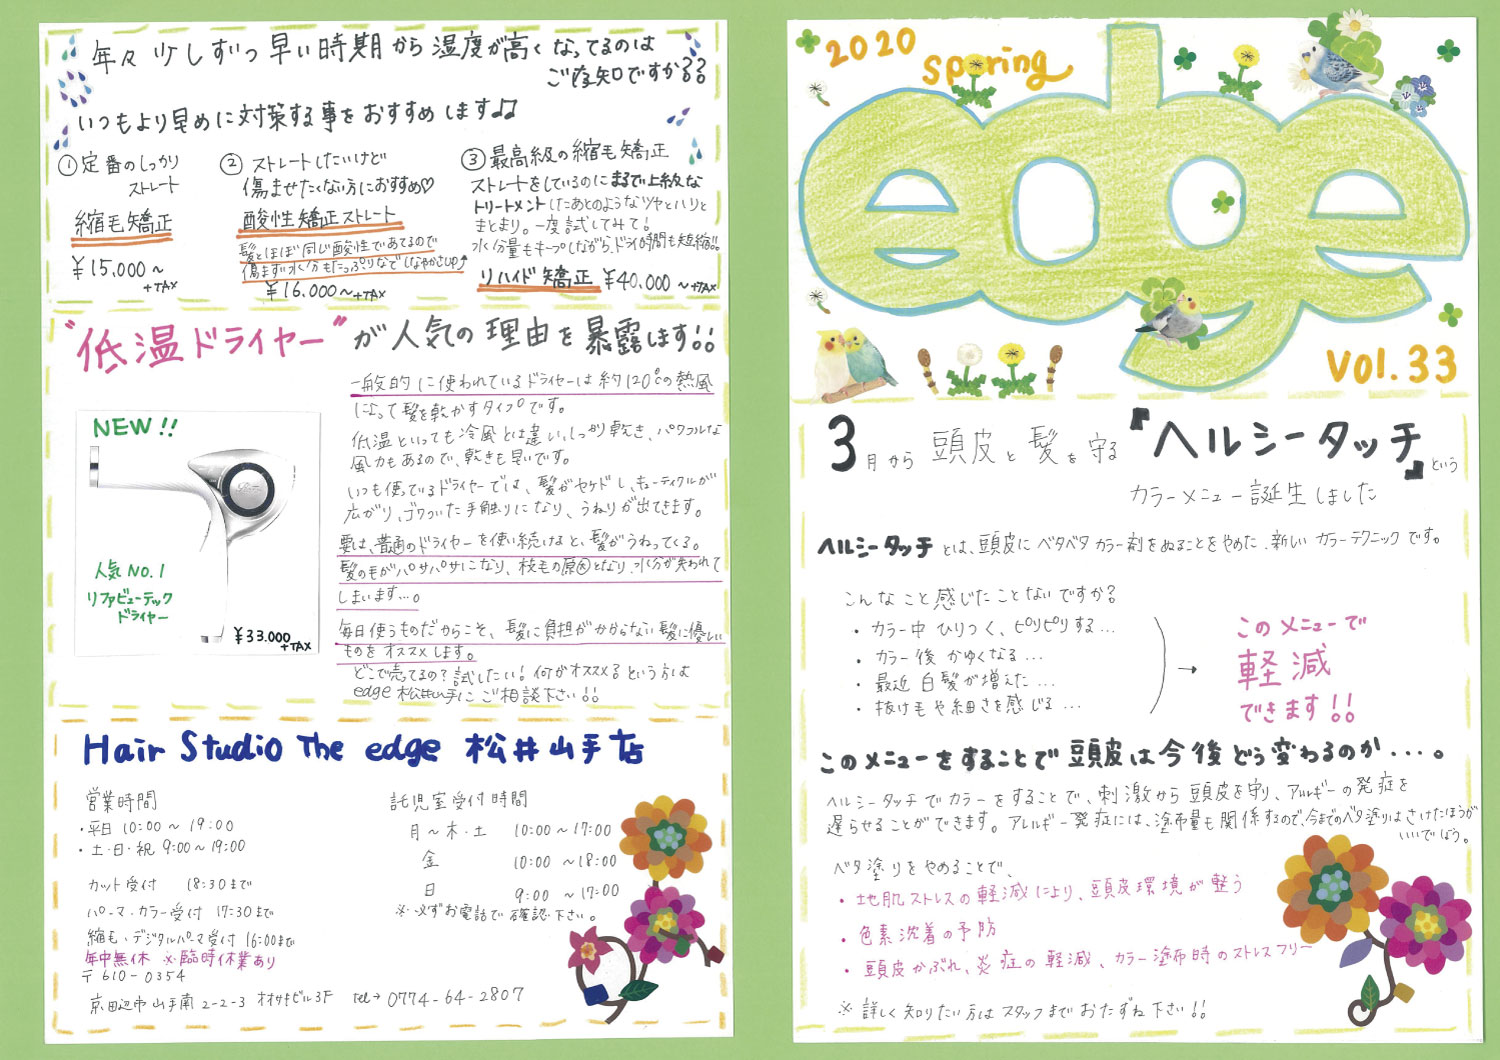 年々少しずつ早い時期から湿度が高くなってるのは
ご存知ですか??
いつもより早めに対策する事をおすすめします♫
①定番のしっかり
ストレート
縮毛矯正
¥15,000～
+TAX
②ストレートしたいけど
傷ませたくない方におすすめ♡
酸性矯正ストレート
髪とほぼ同じ酸性であてるので
傷まず水分もたっぷりなでしなやかさUP↑
¥16,000～+TAX
③最高級の縮毛矯正
ストレートをしているのにまるで上級な
トリートメントしたあとのようなツヤとハリと
まとまり。一度試してみて!
水分量もキープしながら、ドライ時間も短縮!!
リハイド矯正 ¥40,000～+TAX
"低温ドライヤー"が人気の理由を暴露します!!
NEW!!
人気NO.1
リファビューテック
ドライヤー
¥33,000
+TAX
一般的に使われているドライヤーは約120℃の熱風
によって髪を乾かすタイプです。
低温といっても冷風とは違い、しっかり乾き、パワフルな
風力もあるので、乾きも早いです。
いつも使っているドライヤーでは、髪がセケドし、キューティクルが
広がり、ゴワついた手触りになり、うねりが出てきます。
要は、普通のドライヤーを使い続けると、髪がうねってくる。
髪の毛がパサパサになり、枝毛の原因となり、水分が失われて
しまいます…。
毎日使うものだからこそ、髪に負担がかからない髪に優しい
ものをオススメします。
どこで売ってるの?試したい!何がオススメ?という方は
edge 松井山手にご相談下さい!!
Hair Studio The edge 松井山手店
営業時間
・平日 10:00～19:00
・土・日・祝 9:00～19:00
カット受付 18:30まで
パーマ・カラー受付 17:30まで
縮毛・デジタルパーマ受付 16:00まで
年中無休 ※臨時休業あり
〒610-0354
京田辺市山手南2-2-3 オオサキビル3F tel→0774-64-2807
託児室受付時間
月～木・土 10:00～17:00
金 10:00～18:00
日 9:00～17:00
※必ずお電話で確認下さい。
2020 spring
edge
Vol.33
3月から頭皮と髪を守る『ヘルシータッチ』という
カラーメニュー誕生しました
ヘルシータッチとは、頭皮にベタベタカラー剤をぬることをやめた、新しいカラーテクニックです。
こんなこと感じたことないですか?
・カラー中ひりつく、ピリピリする…
・カラー後かゆくなる…
・最近白髪が増えた…
・抜け毛や細さを感じる…
→
このメニューで
軽減
できます!!
このメニューをすることで頭皮は今後どう変わるのか...。
ヘルシータッチでカラーをすることで、刺激から頭皮を守り、アレルギーの発症を
遅らせることができます。アレルギー発症には、塗布量も関係するので、今までのベタ塗りはさけたほうが
いいでしょう。
ベタ塗りをやめることで、
・地肌ストレスの軽減により、頭皮環境が整う
・色素沈着の予防
・頭皮かぶれ、炎症の軽減、カラー塗布時のストレスフリー
※詳しく知りたい方はスタッフまでおたずね下さい!!